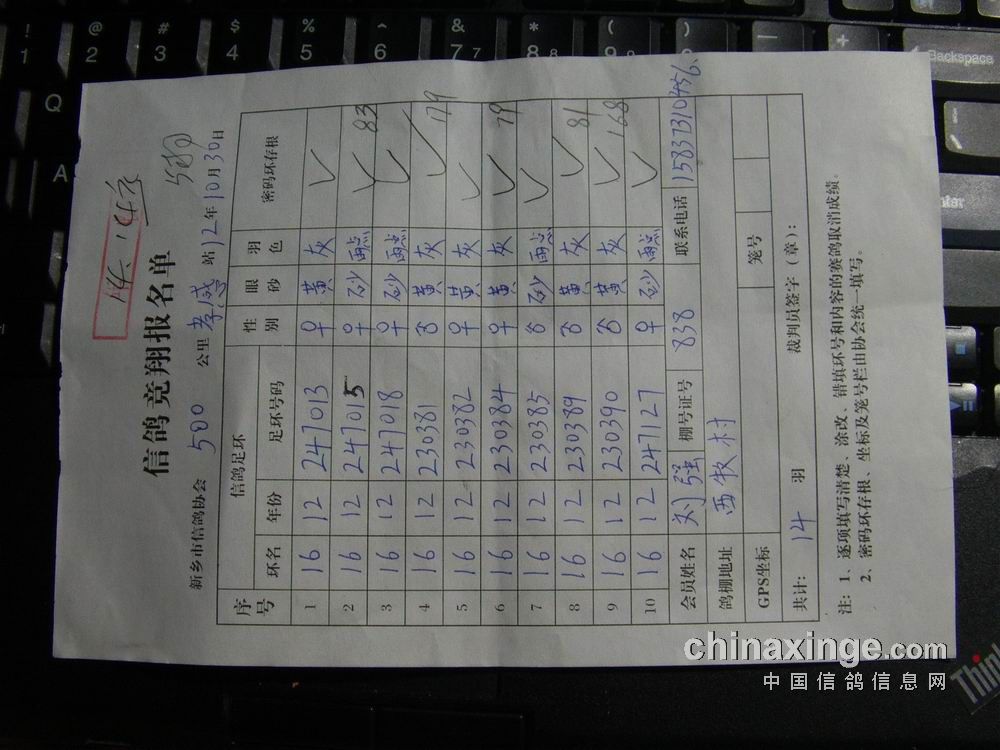 14.
信鸽竞翔报名单
新乡市信鸽协会 500 公里 孝感 站 12 年 10 月 30 日
序号 信鸽足环 性别 眼砂 羽色 密码环存根
环名 年份 足环号码
1 16 12 247013 ♀ 黄 灰 ✓
2 16 12 247015 ♀ 砂 雨点 ✓ 83
3 16 12 247018 ♀ 砂 雨点 ✓
4 16 12 230381 ♂ 黄 灰 ✓ 179
5 16 12 230382 ♀ 黄 灰 ✓
6 16 12 230384 ♀ 黄 灰 ✓ 79
7 16 12 230385 ♂ 砂 雨点 ✓
8 16 12 230389 ♂ 黄 灰 ✓ 81
9 16 12 230390 ♂ 黄 灰 ✓ 168
10 16 12 247127 ♀ 砂 雨点 ✓
会员姓名 刘强 棚号证号 838 联系电话 15837310456
鸽棚地址 西牧村
GPS坐标 笼号
共计: 14 羽 裁判员签字(章):
注: 1、逐项填写清楚、涂改、错填环号和内容的赛鸽取消成绩。
2、密码环存根、坐标及笼号栏由协会统一填写。
chinaxinge.com
中国信鸽信息网
Think
Backspace